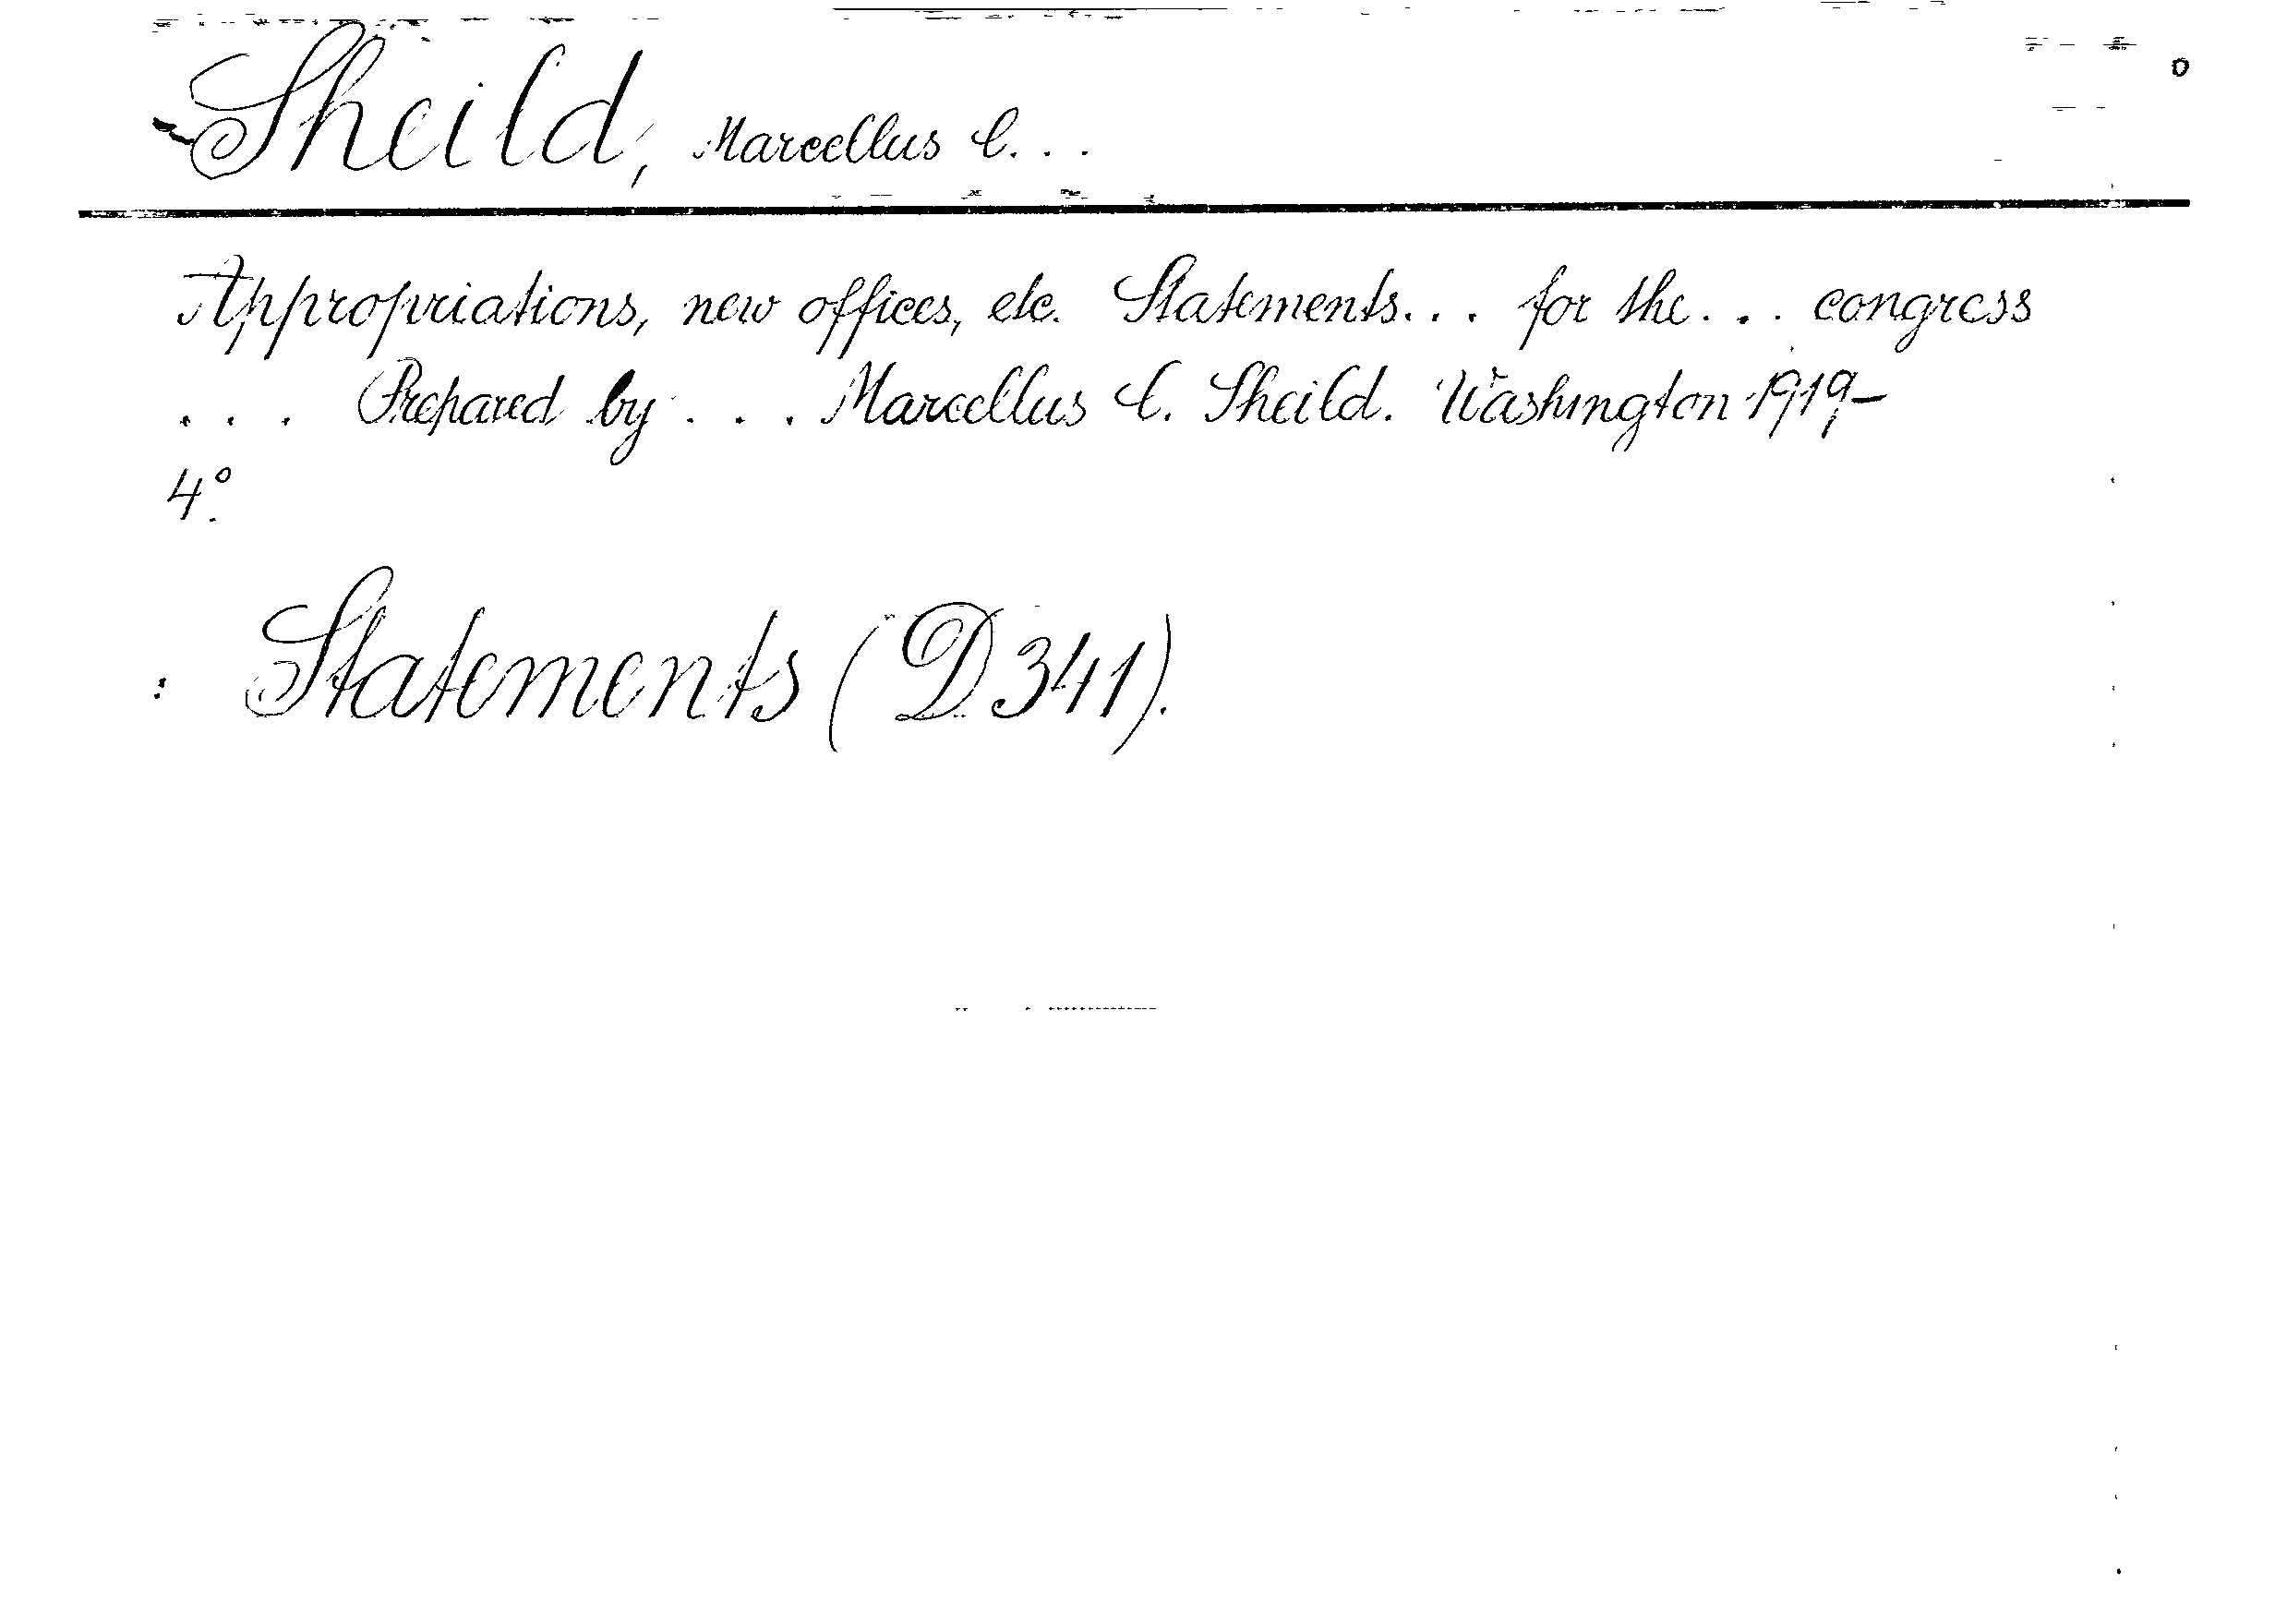 Sheild, Marcellus C. . .
Appropriations, new offices, etc. Statements. . . for the. . . congress
. . . Prepared by . . . Marcellus C. Sheild. Washington 1919-
4°.
: Statements (D 341).